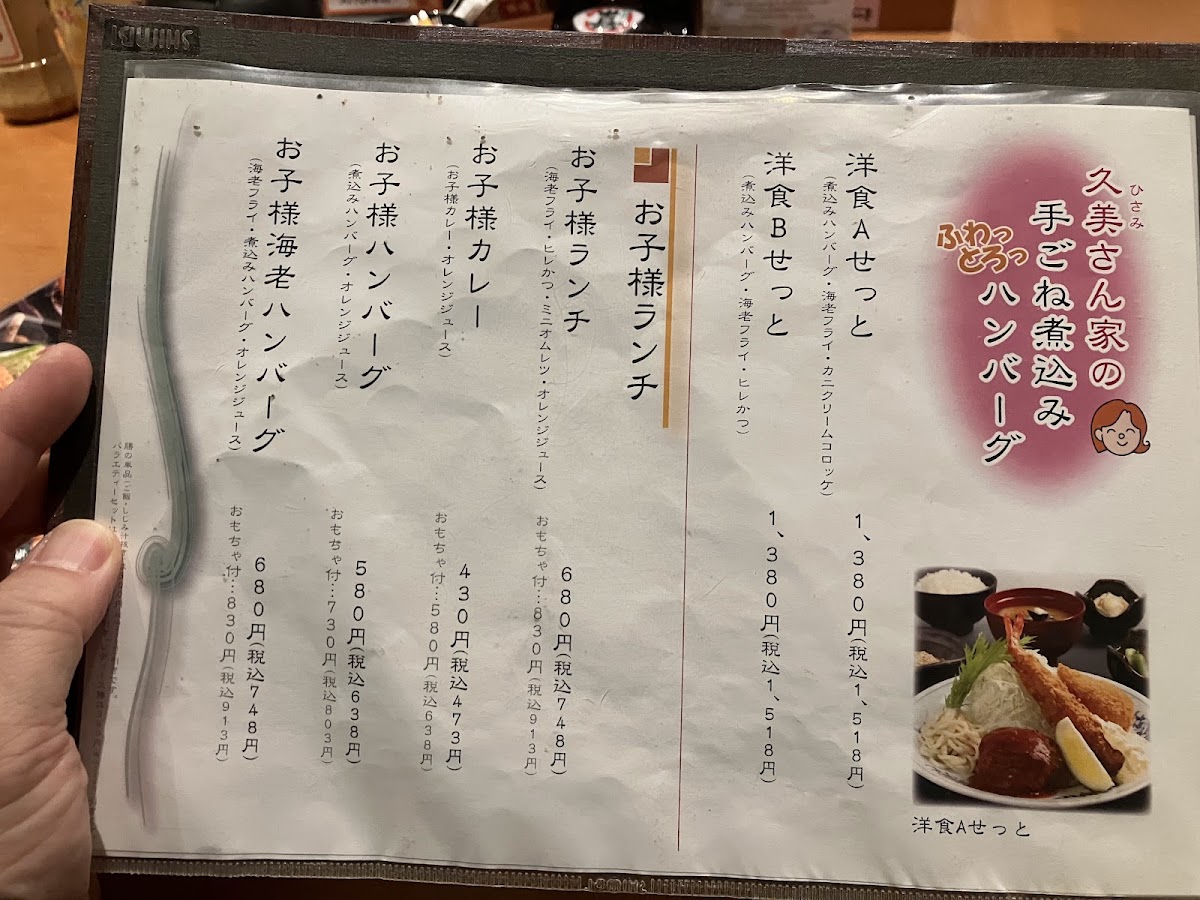 久美さん家の
ひさみ
手ごね煮込み
ふわっ
とろっ
ハンバーグ
洋食Aせっと
洋食Aせっと
(煮込みハンバーグ・海老フライ・カニクリームコロッケ)
1、380円(税込1、518円)
洋食Bせっと
(煮込みハンバーグ・海老フライ・ヒレかつ)
1、380円(税込1、518円)
お子様ランチ
お子様ランチ
(海老フライ・ヒレかつ・ミニオムレツ・オレンジジュース)
680円(税込748円)
おもちゃ付…830円(税込913円)
お子様カレー
(お子様カレー・オレンジジュース)
430円(税込473円)
おもちゃ付…580円(税込638円)
お子様ハンバーグ
(煮込みハンバーグ・オレンジジュース)
580円(税込638円)
おもちゃ付…730円(税込803円)
お子様海老ハンバーグ
(海老フライ・煮込みハンバーグ・オレンジジュース)
680円(税込748円)
おもちゃ付…830円(税込913円)
膳の単品(ご飯・しじみ汁
バラエティーセットは
SHIMBI